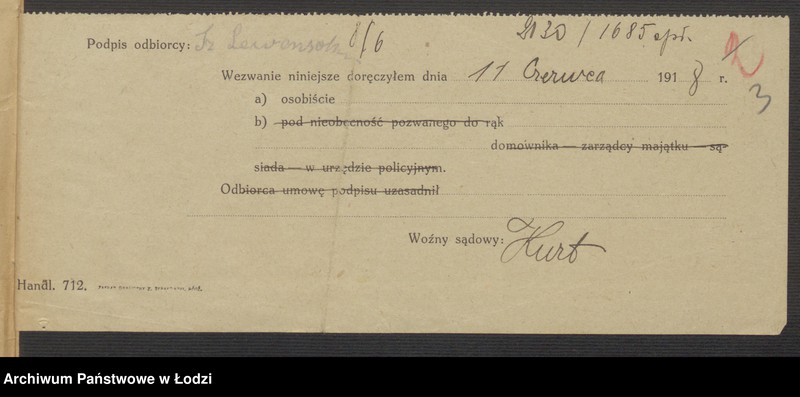 Podpis odbiorcy: 8/6
/ 1685
Wezwanie niniejsze doręczyłem dnia 11 Czerwca 1918 r.
3
a) osobiście
b) pod nieobecność pozwanego do rąk
domownika — zarządcy majątku — są-
siada — w urzędzie policyjnym.
Odbiorca umowę podpisu uzasadnił
Woźny sądowy: Kurt
Handl. 712.
Archiwum Państwowe w Łodzi